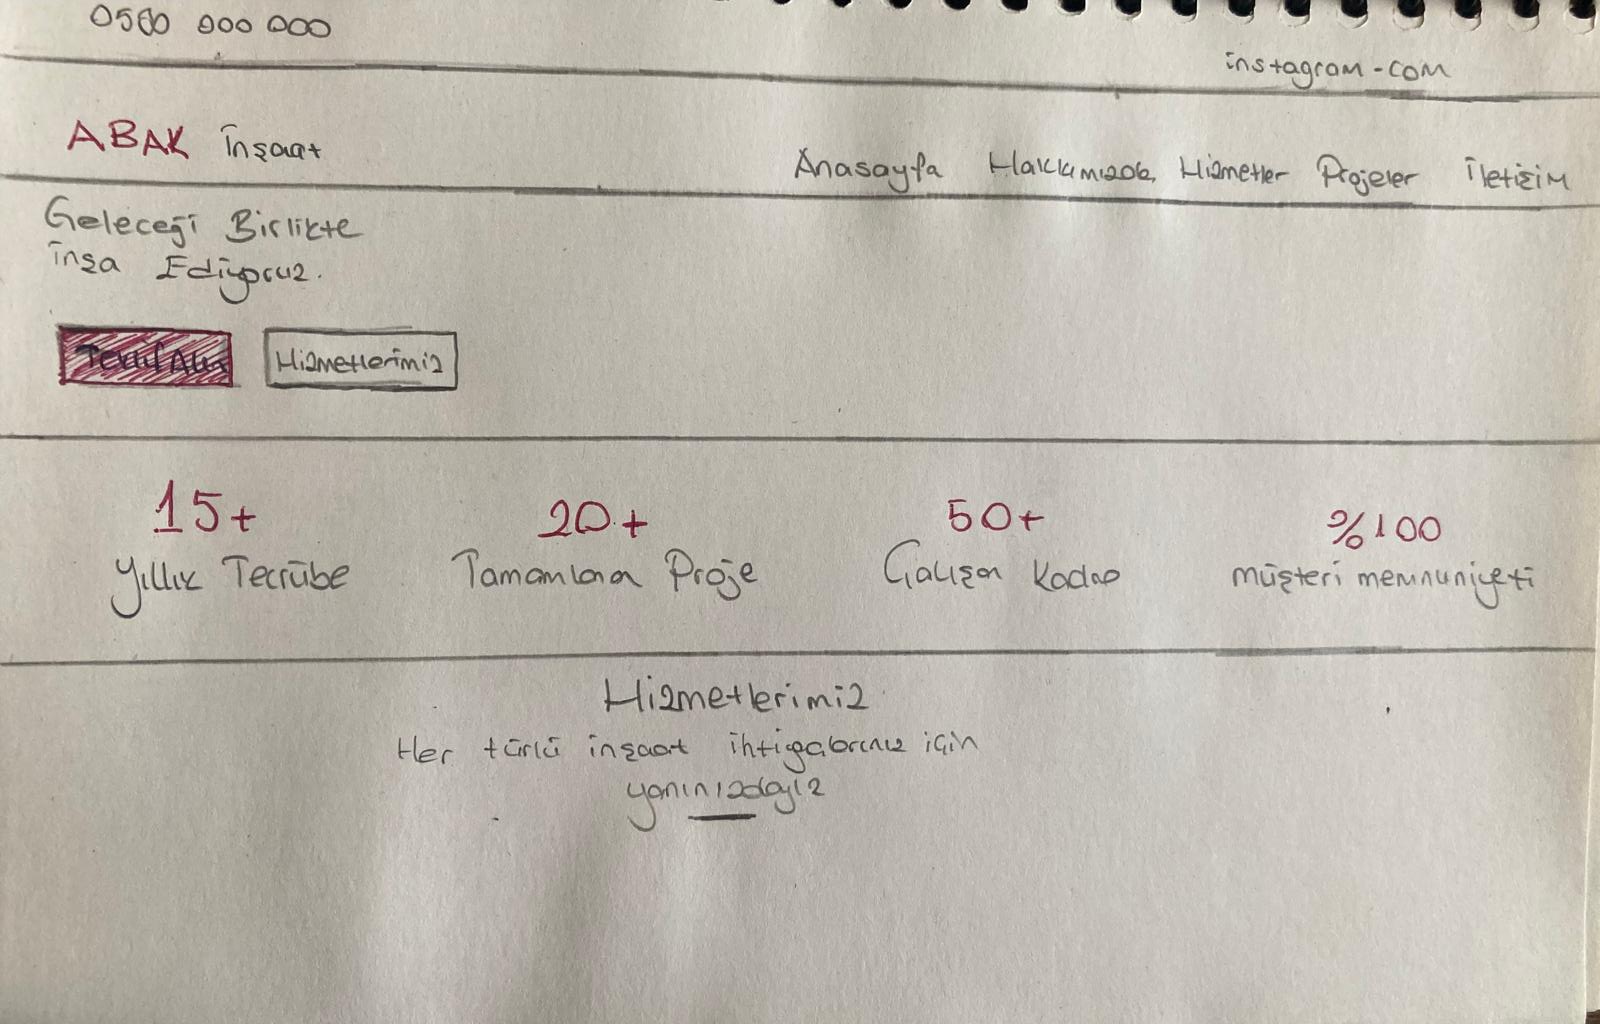 0560 000 000
instagram-com
ABAK İnşaat
Anasayfa Hakkımızda Hizmetler Projeler İletişim
Geleceği Birlikte
İnşa Ediyoruz.
Teklif Alın Hizmetlerimiz
15+ 20+ 50+ %100
Yıllık Tecrübe Tamamlanan Proje Çalışan Kadro müşteri memnuniyeti
Hizmetlerimiz
Her türlü inşaat ihtiyacınız için
yanınızdayız